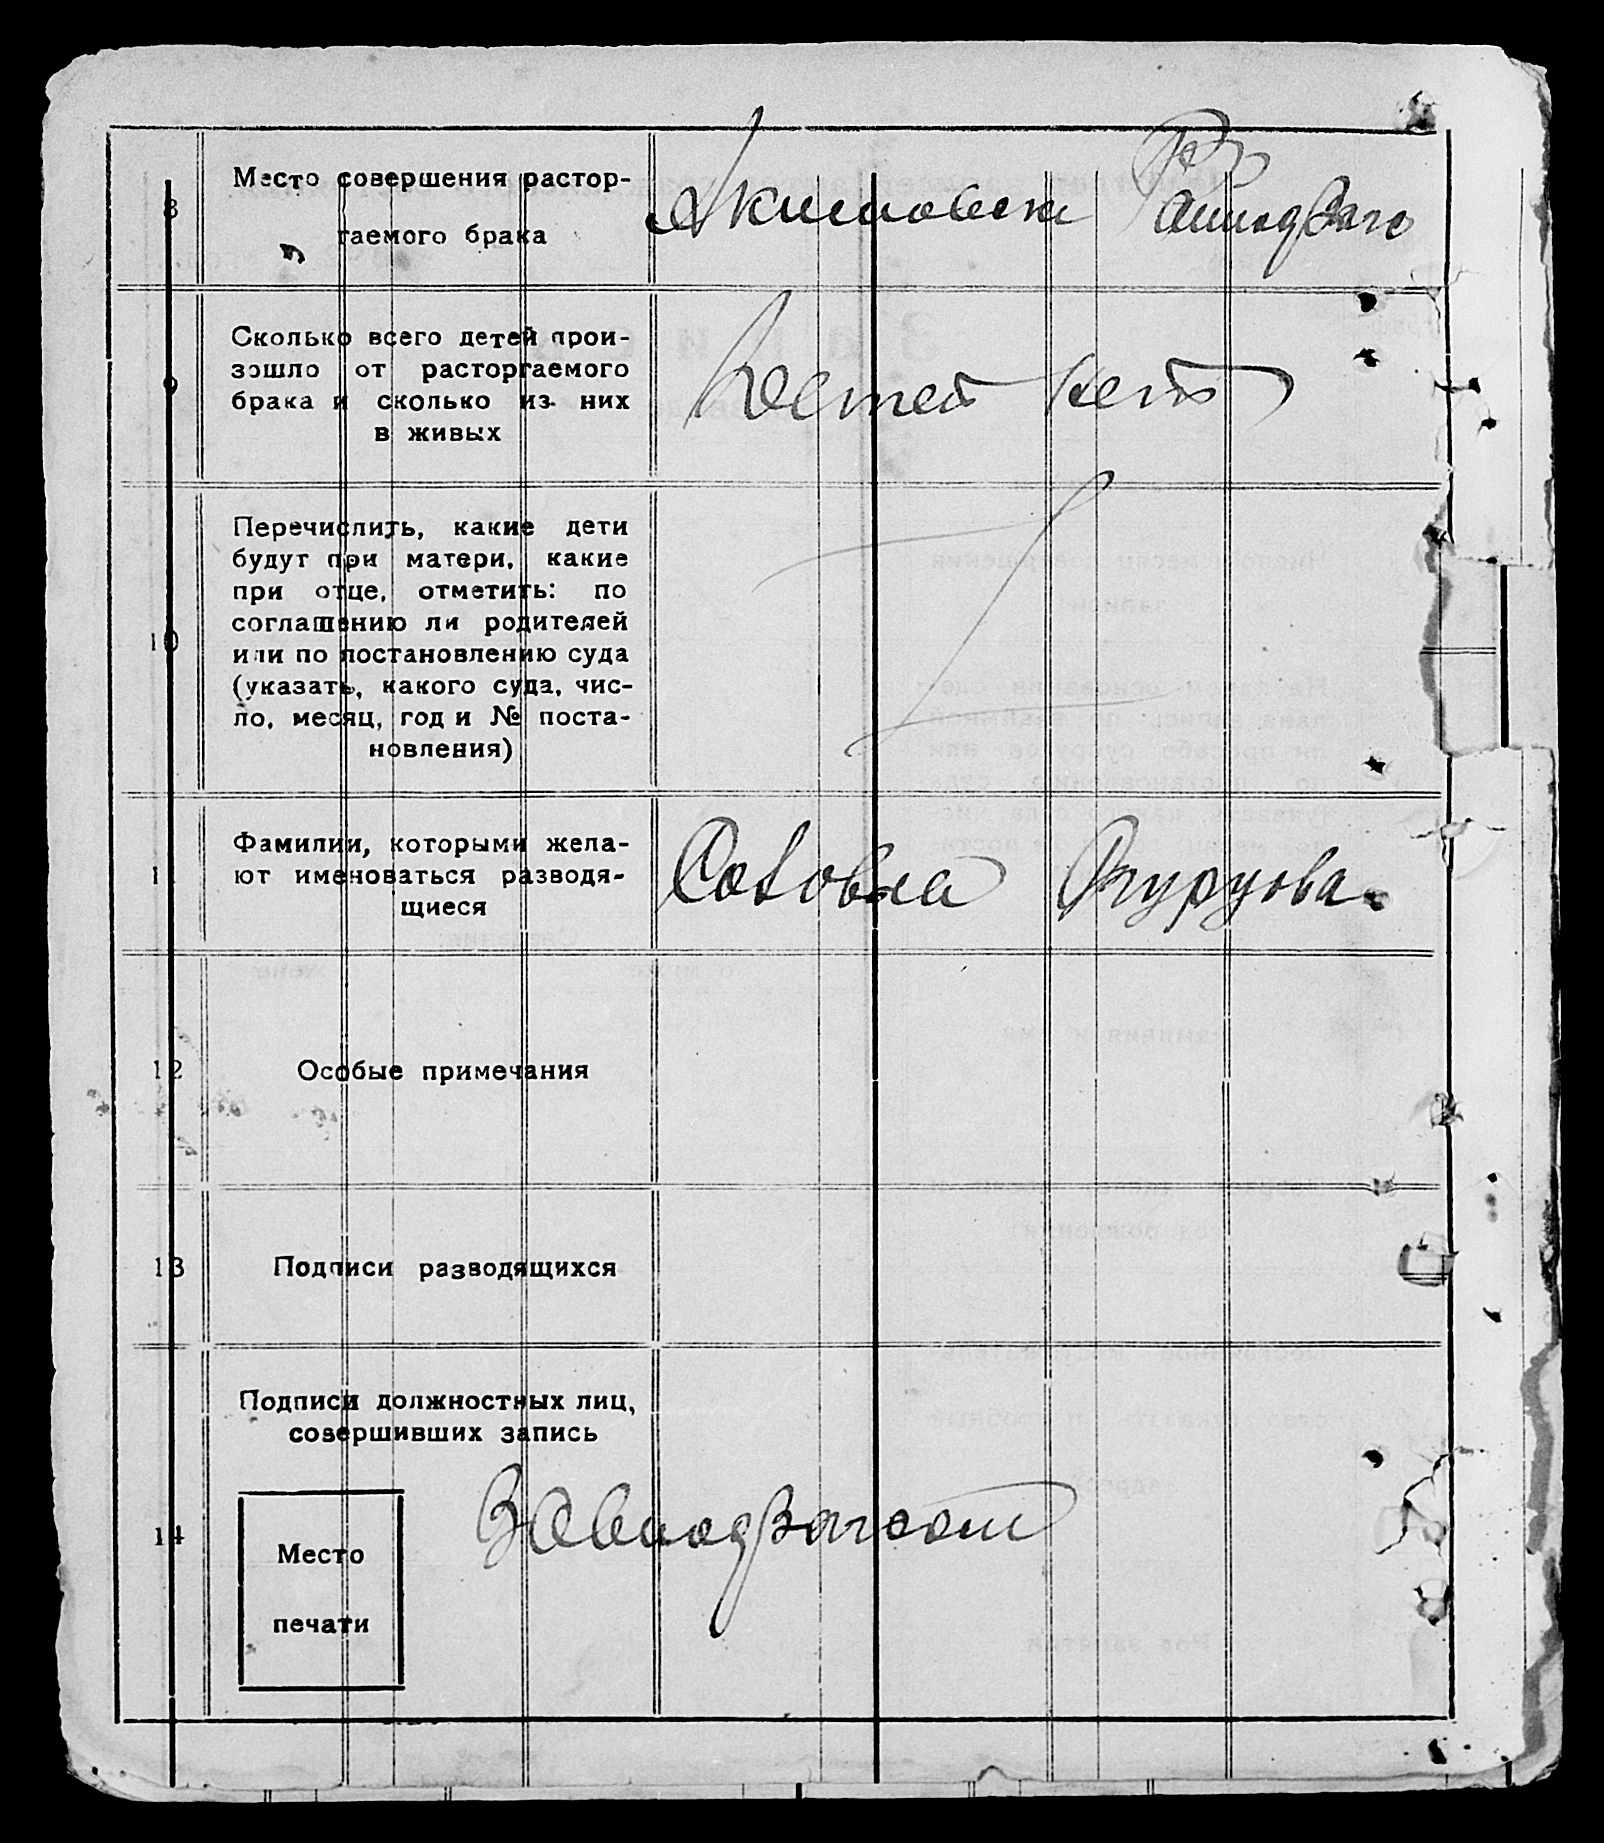 8
Место совершения растор-
гаемого брака
9
Сколько всего детей прои-
зошло от расторгаемого
брака и сколько из них
в живых
Детей нет
10
Перечислить, какие дети
будут при матери, какие
при отце, отметить: по
соглашению ли родителей
или по постановлению суда
(указать, какого суда, чис-
ло, месяц, год и № поста-
новления)
11
Фамилии, которыми жела-
ют именоваться разводя-
щиеся
12
Особые примечания
13
Подписи разводящихся
14
Подписи должностных лиц,
совершивших запись
Место
печати